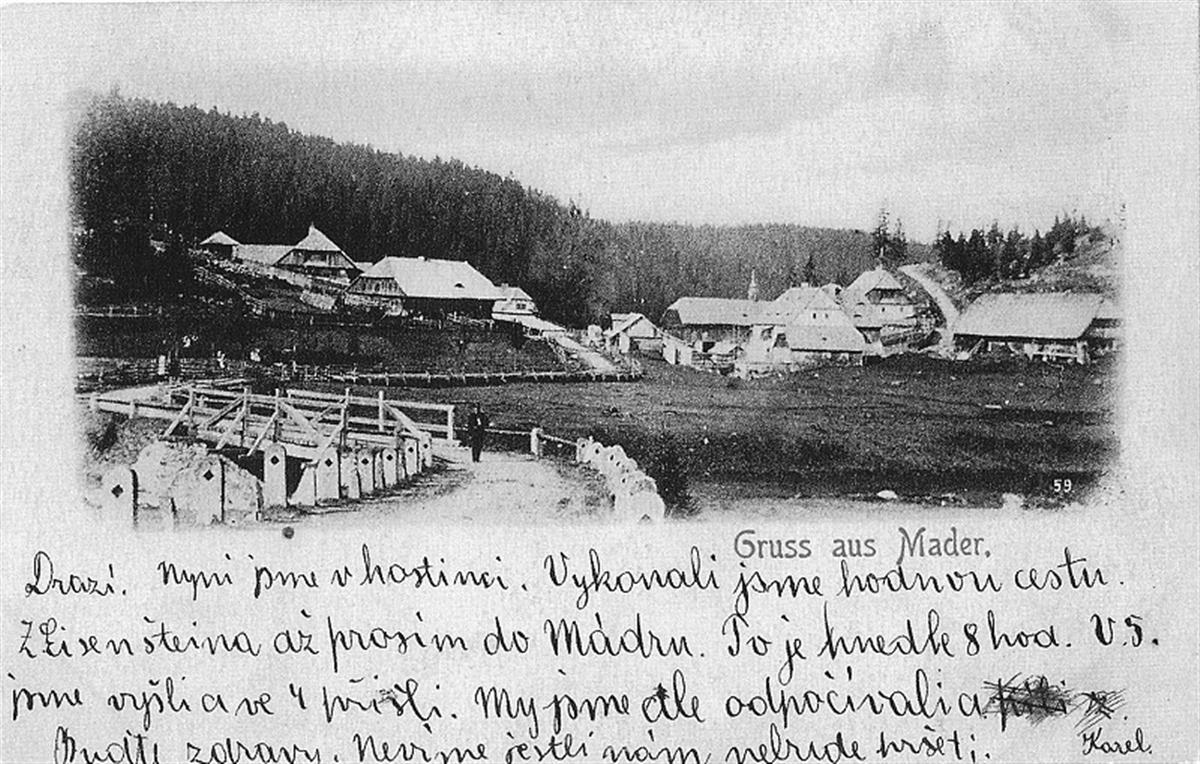 59
Gruss aus Mader.
Drazí. Nyní jsme v hostinci. Vykonali jsme hodnou cestu.
Z Eisenšteina až prosím do Mádru. To je hnedle 8 hod. V 5.
jsme vyšli a ve 4 přišli. My jsme dle odpočívali a
Buďte zdravy. Nevíme jestli nám nebude pršet;.
Karel.